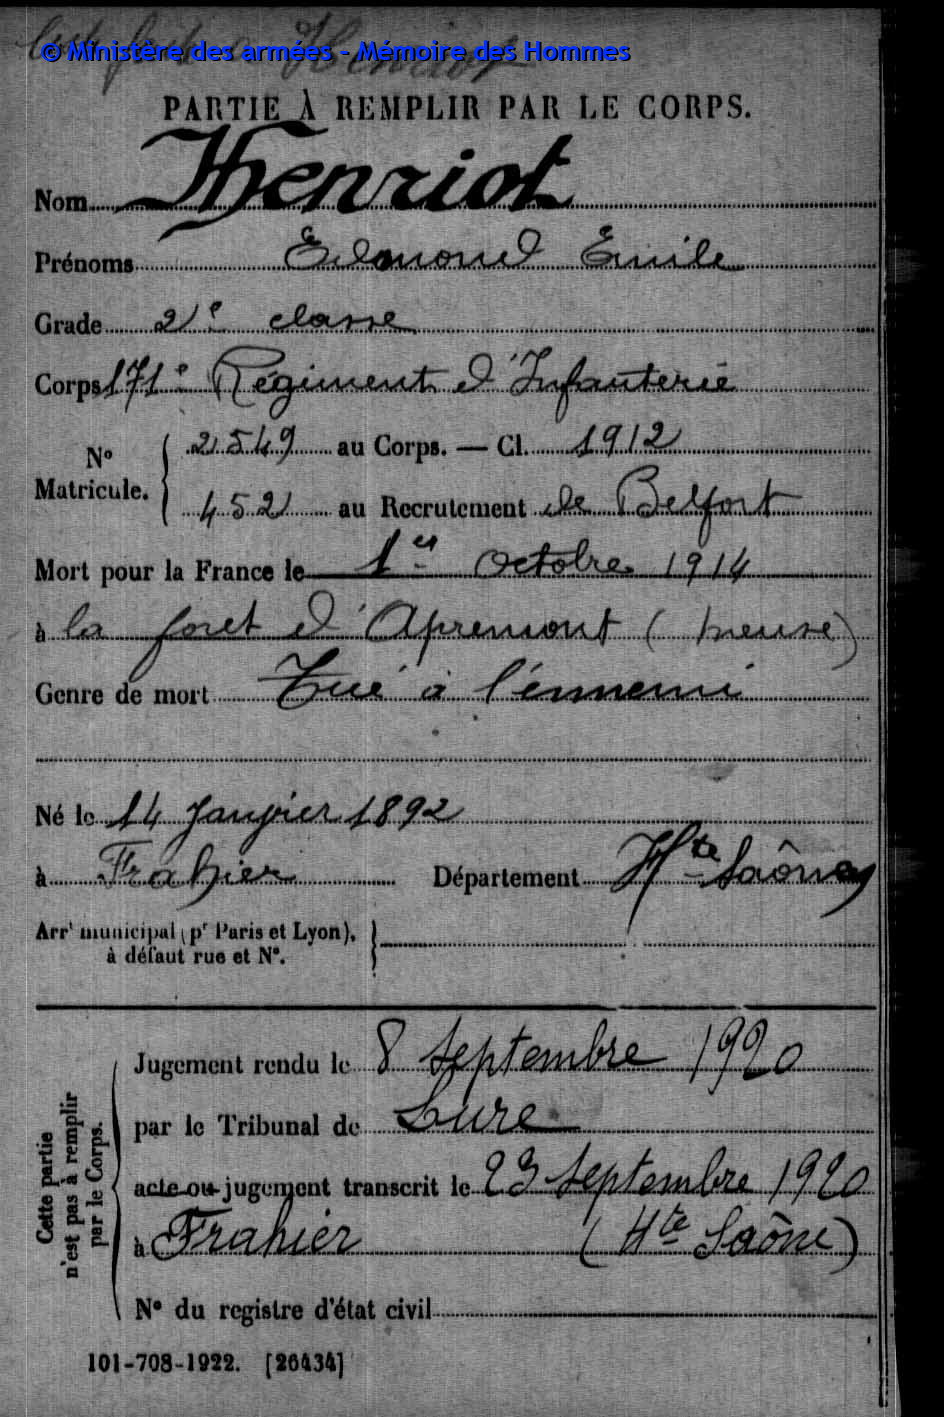 © Ministère des armées - Mémoire des Hommes
Henriot
PARTIE À REMPLIR PAR LE CORPS.
Nom Henriot
Prénoms Edmond Emile
Grade 2e classe
Corps 171e Régiment d'Infanterie
N° Matricule. { 2549 au Corps. — Cl. 1912
452 au Recrutement de Belfort
Mort pour la France le 1er octobre 1914
à la foret d'Apremont (meuse)
Genre de mort Tué à l'énnemi
Né le 14 Janvier 1892
à Frahier Département Hte-Saône
Arrt municipal (pr Paris et Lyon),
à défaut rue et N°.
Cette partie
n'est pas à remplir
par le Corps.
Jugement rendu le 8 septembre 1920
par le Tribunal de Lure
acte ou jugement transcrit le 23 septembre 1920
à Frahier (Hte Saône)
N° du registre d'état civil
101-708-1922. [26434]